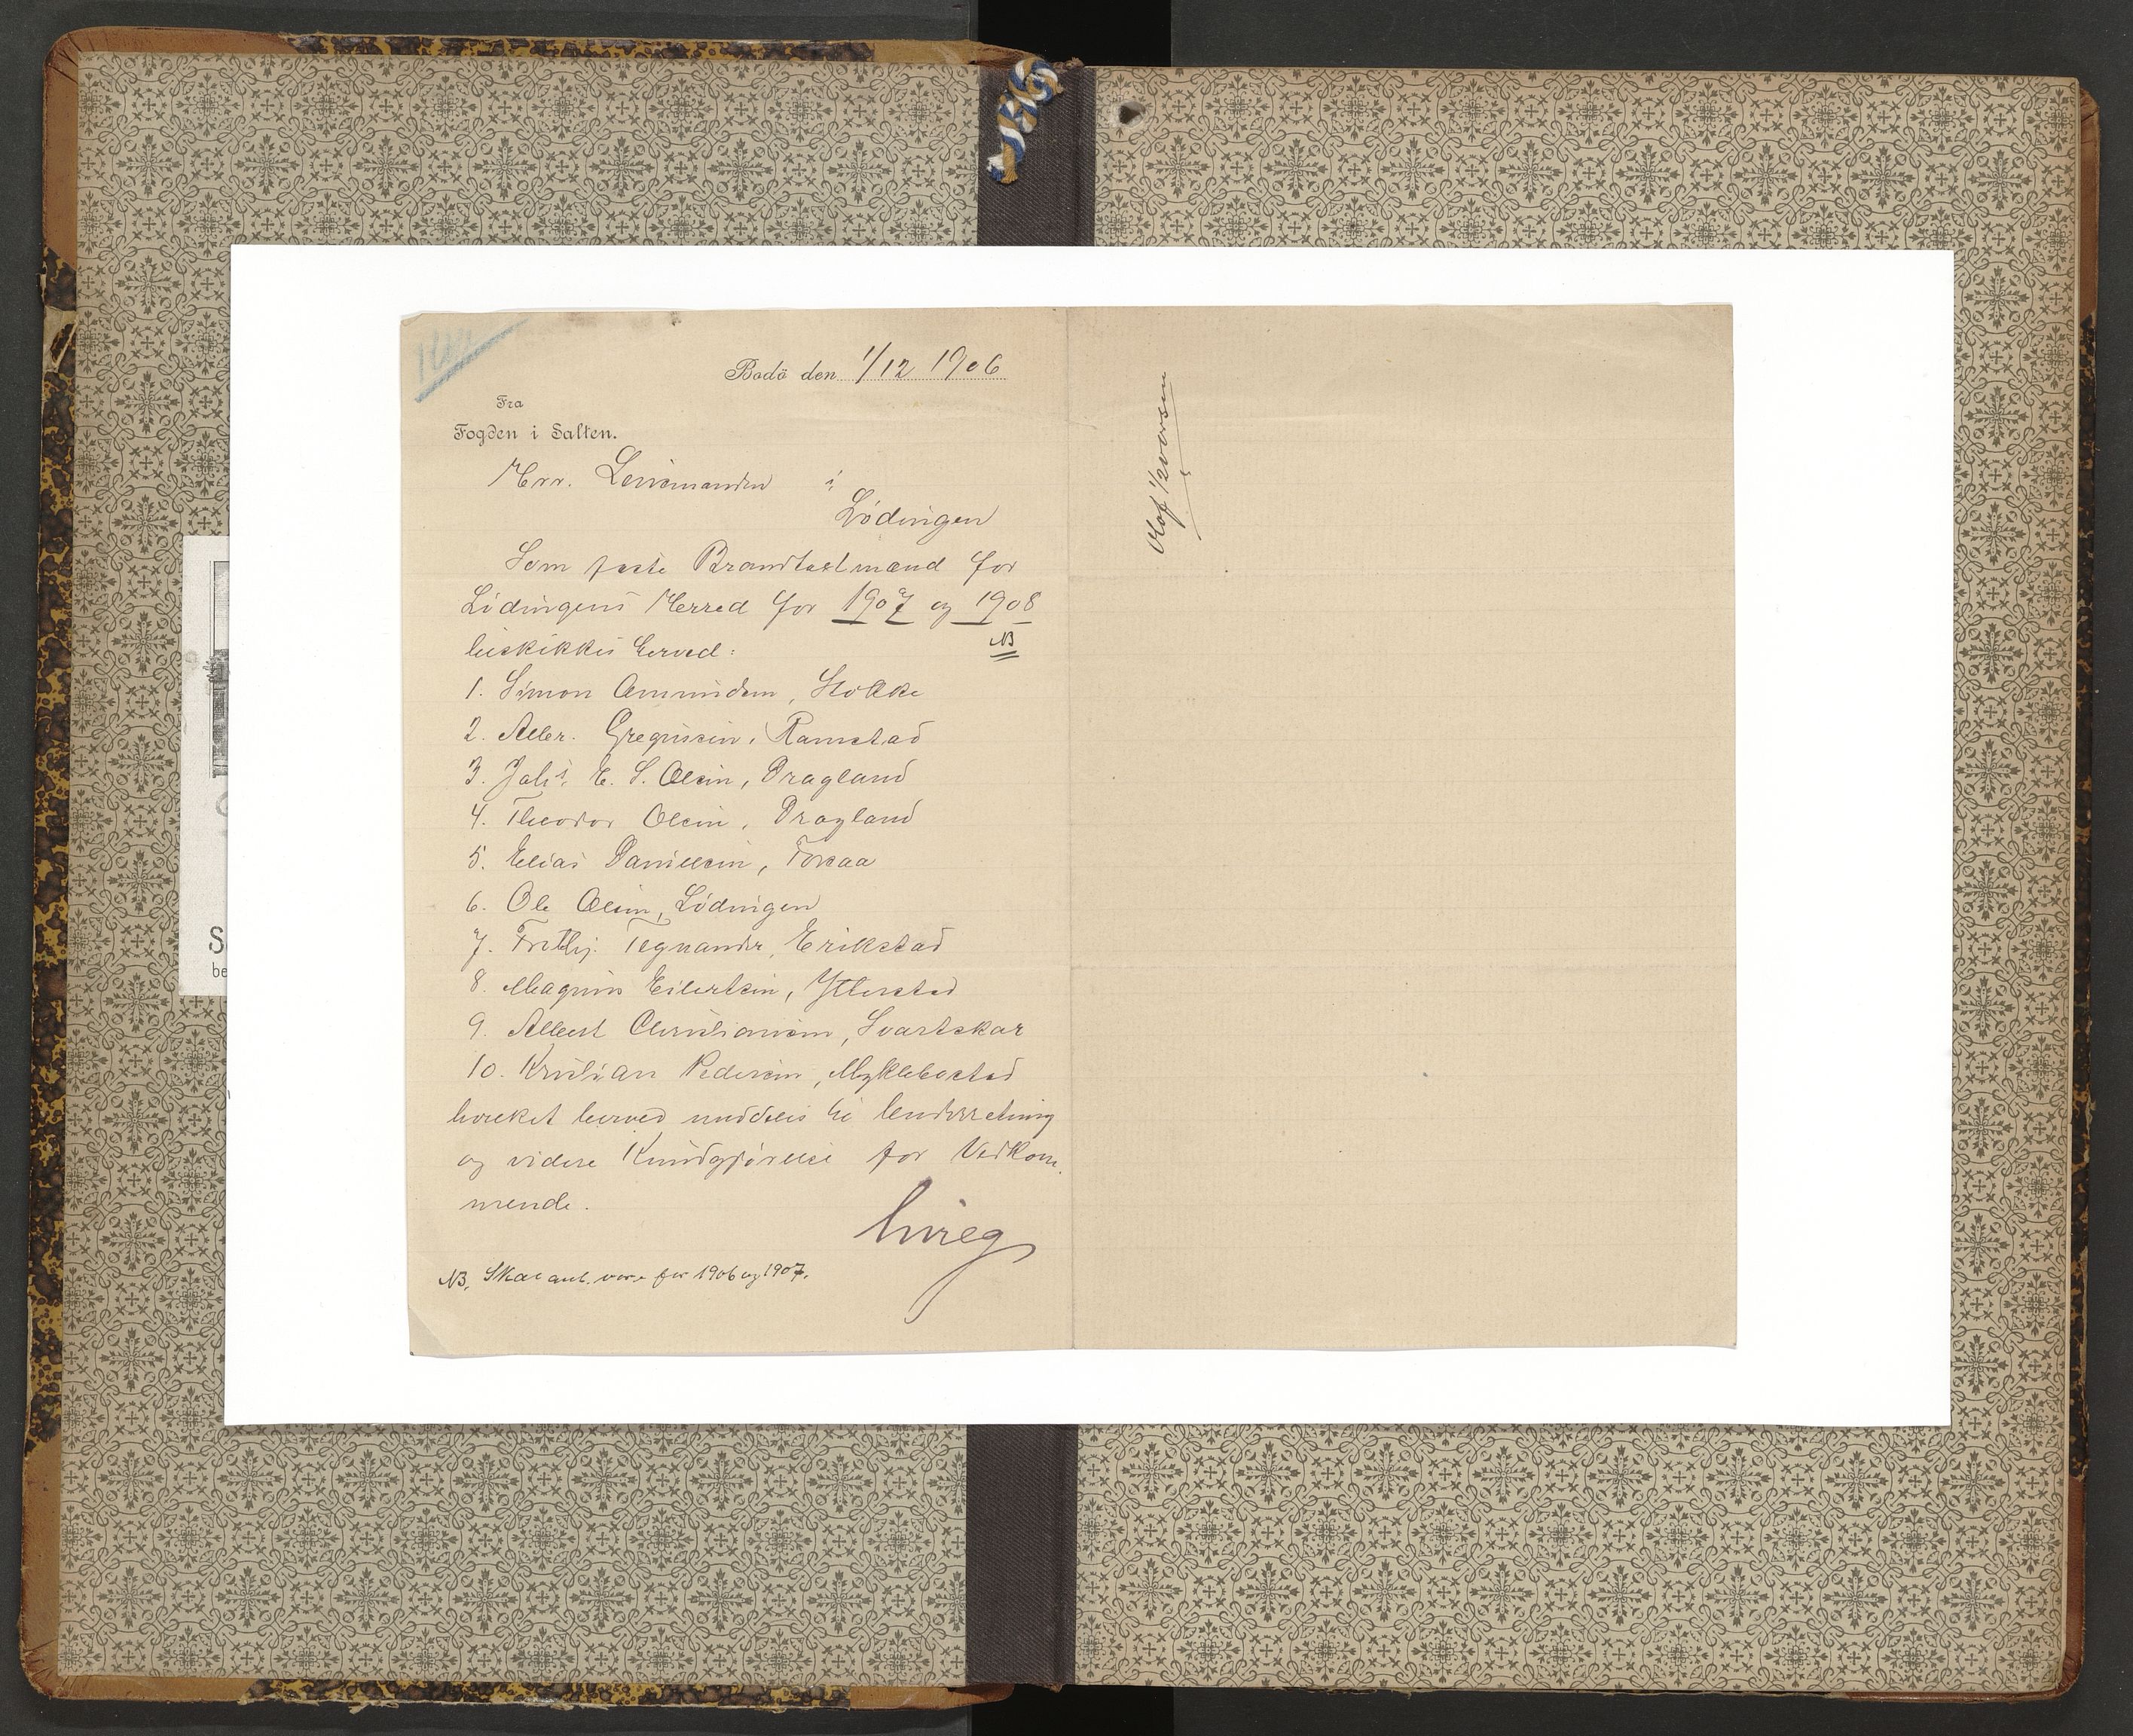 Bodö den 1/12 1906
Fra
Fogden i Salten.
Herr. Lensmanden i
Lödingen
Som faste Brandtakstmænd for
Lödingens Herred for 1907 og 1908
NB
beskikkes herved:
1. Simon Amundsen, Stokke
2. Alber. Gregussen, Ramstad
3. Johs. E. S. Olsen, Dragland
4. Theodor Olsen, Dragland
5. Elias Danielsen, Forsaa
6. Ole Olsen, Lödingen
7. Frithj. Tegnander, Erikstad
8. Magnus Eilertsen, Ytterstad
9. Albert Christiansen, Svartskar
10. Kristian Pedersen, Myklebostad
hvilket herved meddeles til Underretning
og videre Kundgjörelse for Vedkom.
mende.
NB. Skal ant. være for 1906 og 1907.
Olof Iversen
S
be